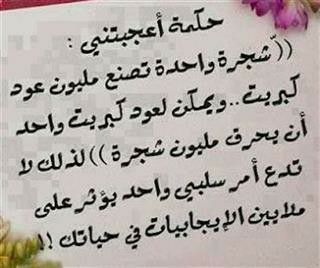 حكمة أعجبتني :
((شجرة واحدة تصنع مليون عود
كبريت..ويمكن لعود كبريت واحد
أن يحرق مليون شجرة))لذلك لا
تدع أمر سلبي واحد يؤثر على
ملايين الإيجابيات في حياتك !!